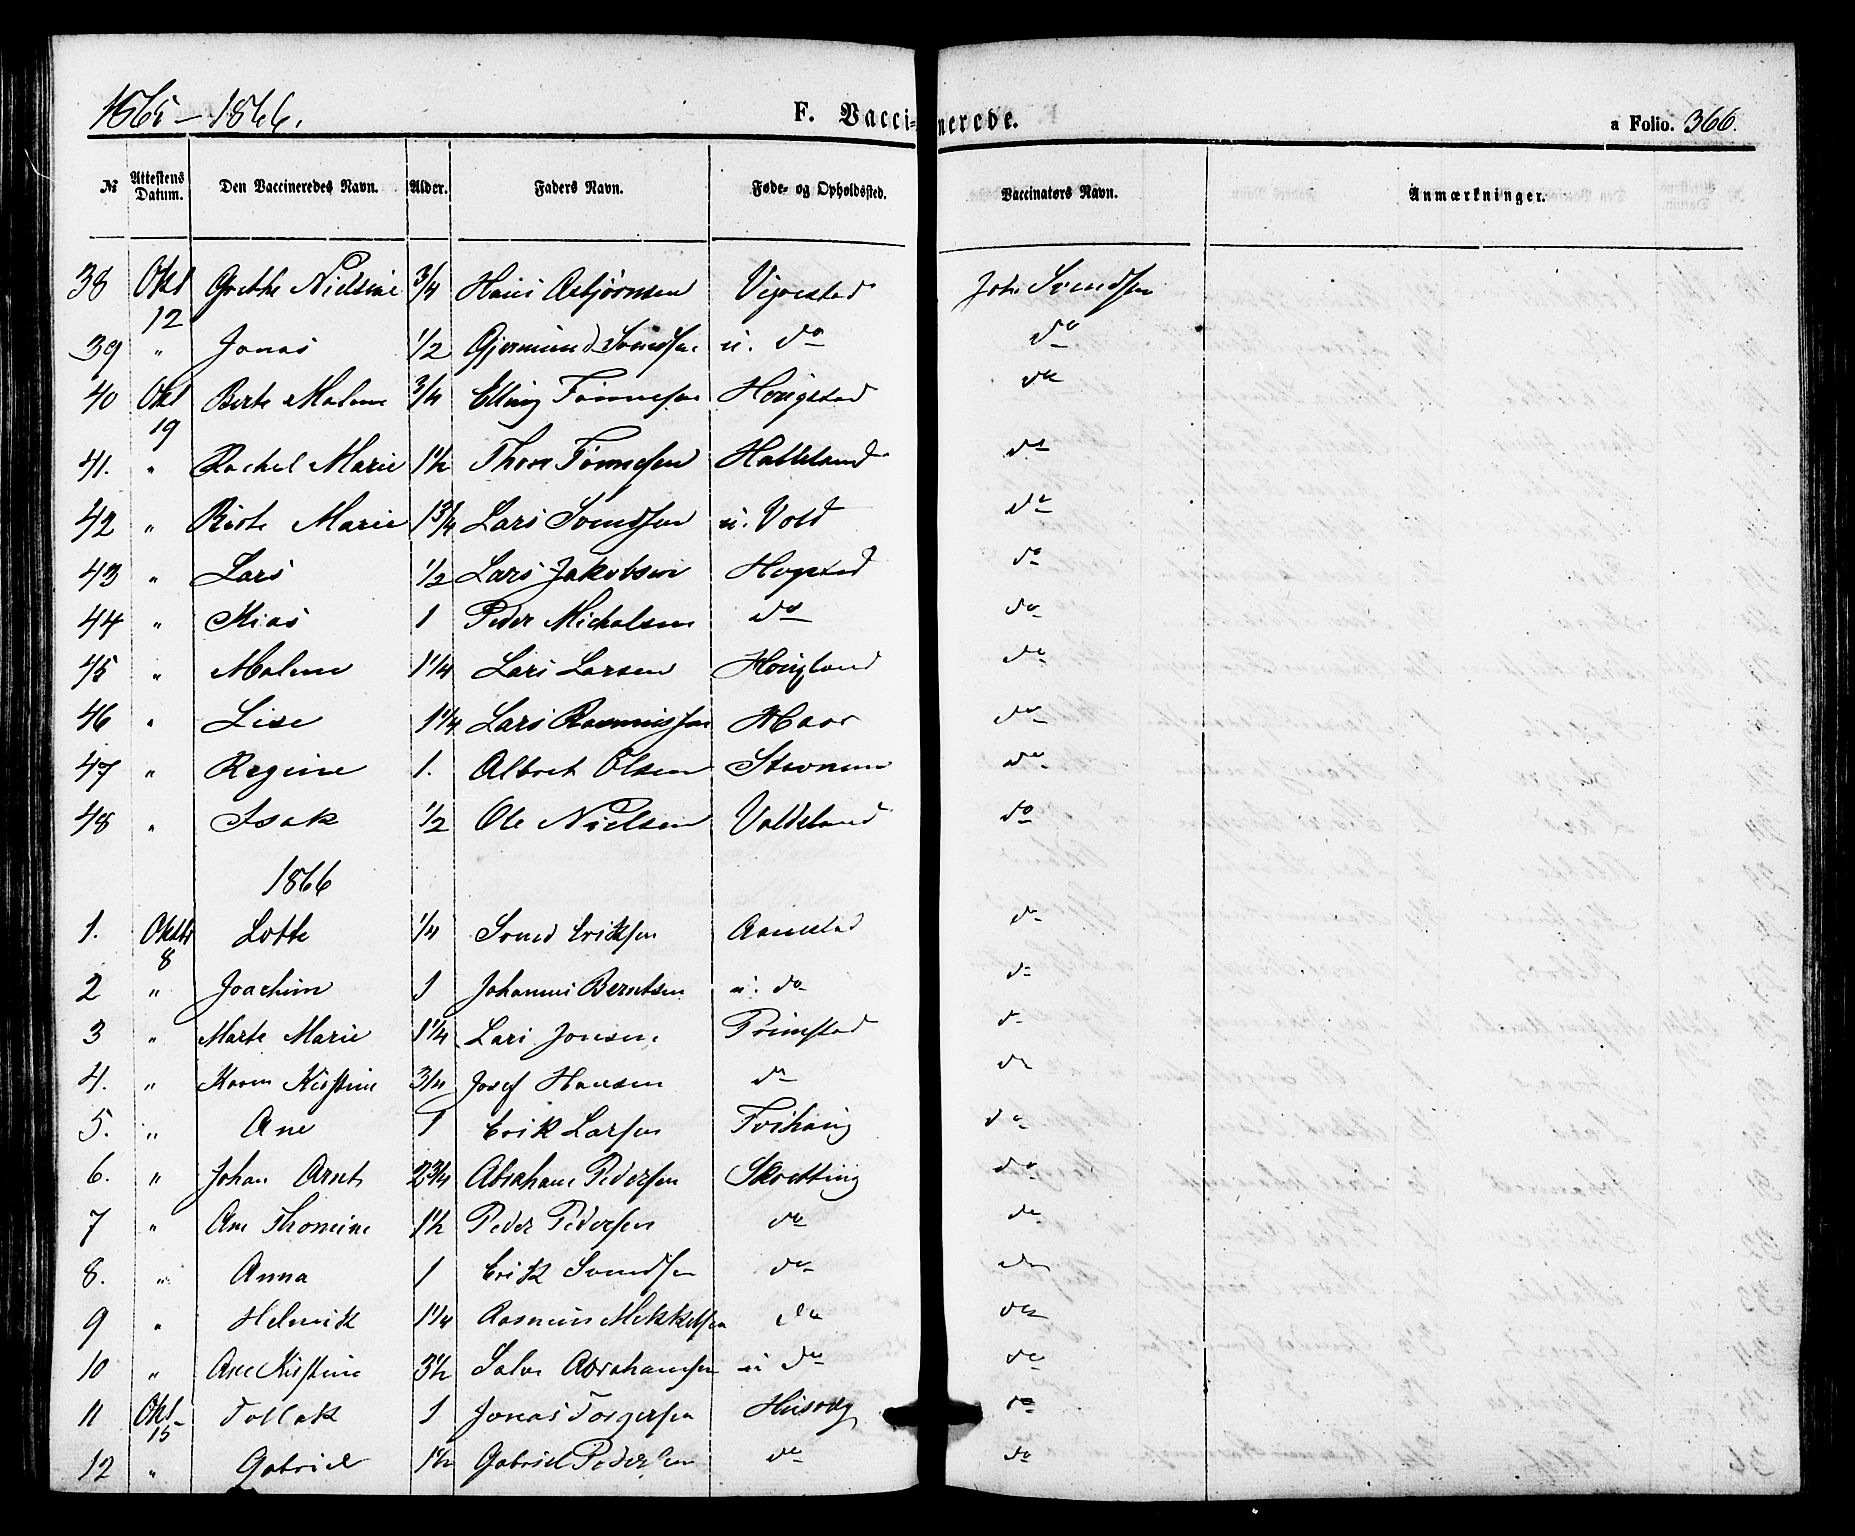 1865–1866.
F. Vaccinerede.
a Folio. 366.
№ Attestens Datum. Den Vaccineredes Navn. Alder. Faders Navn. Føde- og Opholdssted. Vaccinators Navn. Anmærkninger.
38 Okt 12 Grethe Nielsine 3/4 Hans Asbjørnsen Vigrestad Joh. Svendsen
39 " Jonas 1/2 Gjermund Svendsen u. do do
40 Okt 19 Berte Malene 3/4 Elling Tønnesen Hougstad do
41. " Rachel Marie 1 1/2 Thore Tønnesen Halleland do
42 " Birte Marie 1 3/4 Lars Svendsen u. Vold do
43 " Lars 1/2 Lars Jakobsen Hogstad do
44 " Kias 1 Peder Michalsen do do
45 " Malene 1 1/4 Lars Larsen Hougland do
46 " Lise 1 1/4 Lars Rasmussen Maar do
47 " Regine 1. Albret Olsen Stavnem do
48 " Isak 1/2 Ole Nielsen Valdeland do
1866
1. Oktbr 8 Lotte 1/4 Svend Eriksen Aanestad do
2 " Joachim 1 Johannes Berntsen u. do do
3 " Marte Marie 1 1/4 Lars Jonsen Primstad do
4. " Karen Kirstine 3/4 Josef Hansen do do
5. " Ane 1 Erik Larsen Frihoug do
6. " Johan Arnt 2 3/4 Abraham Pedersen Skretting do
7 " Ane Thomine 1 1/2 Peder Pedersen do do
8. " Anna 1 Erik Svendsen do do
9 " Helmik 1 1/4 Rasmus Mekkelsen do do
10 " Ane Kirstine 3 1/2 Salve Abrahamsen u do do
11 Okt 15 Tollak 1 Jonas Torgersen Husvæg do
12 " Gabriel 1 1/2 Gabriel Pedersen do do